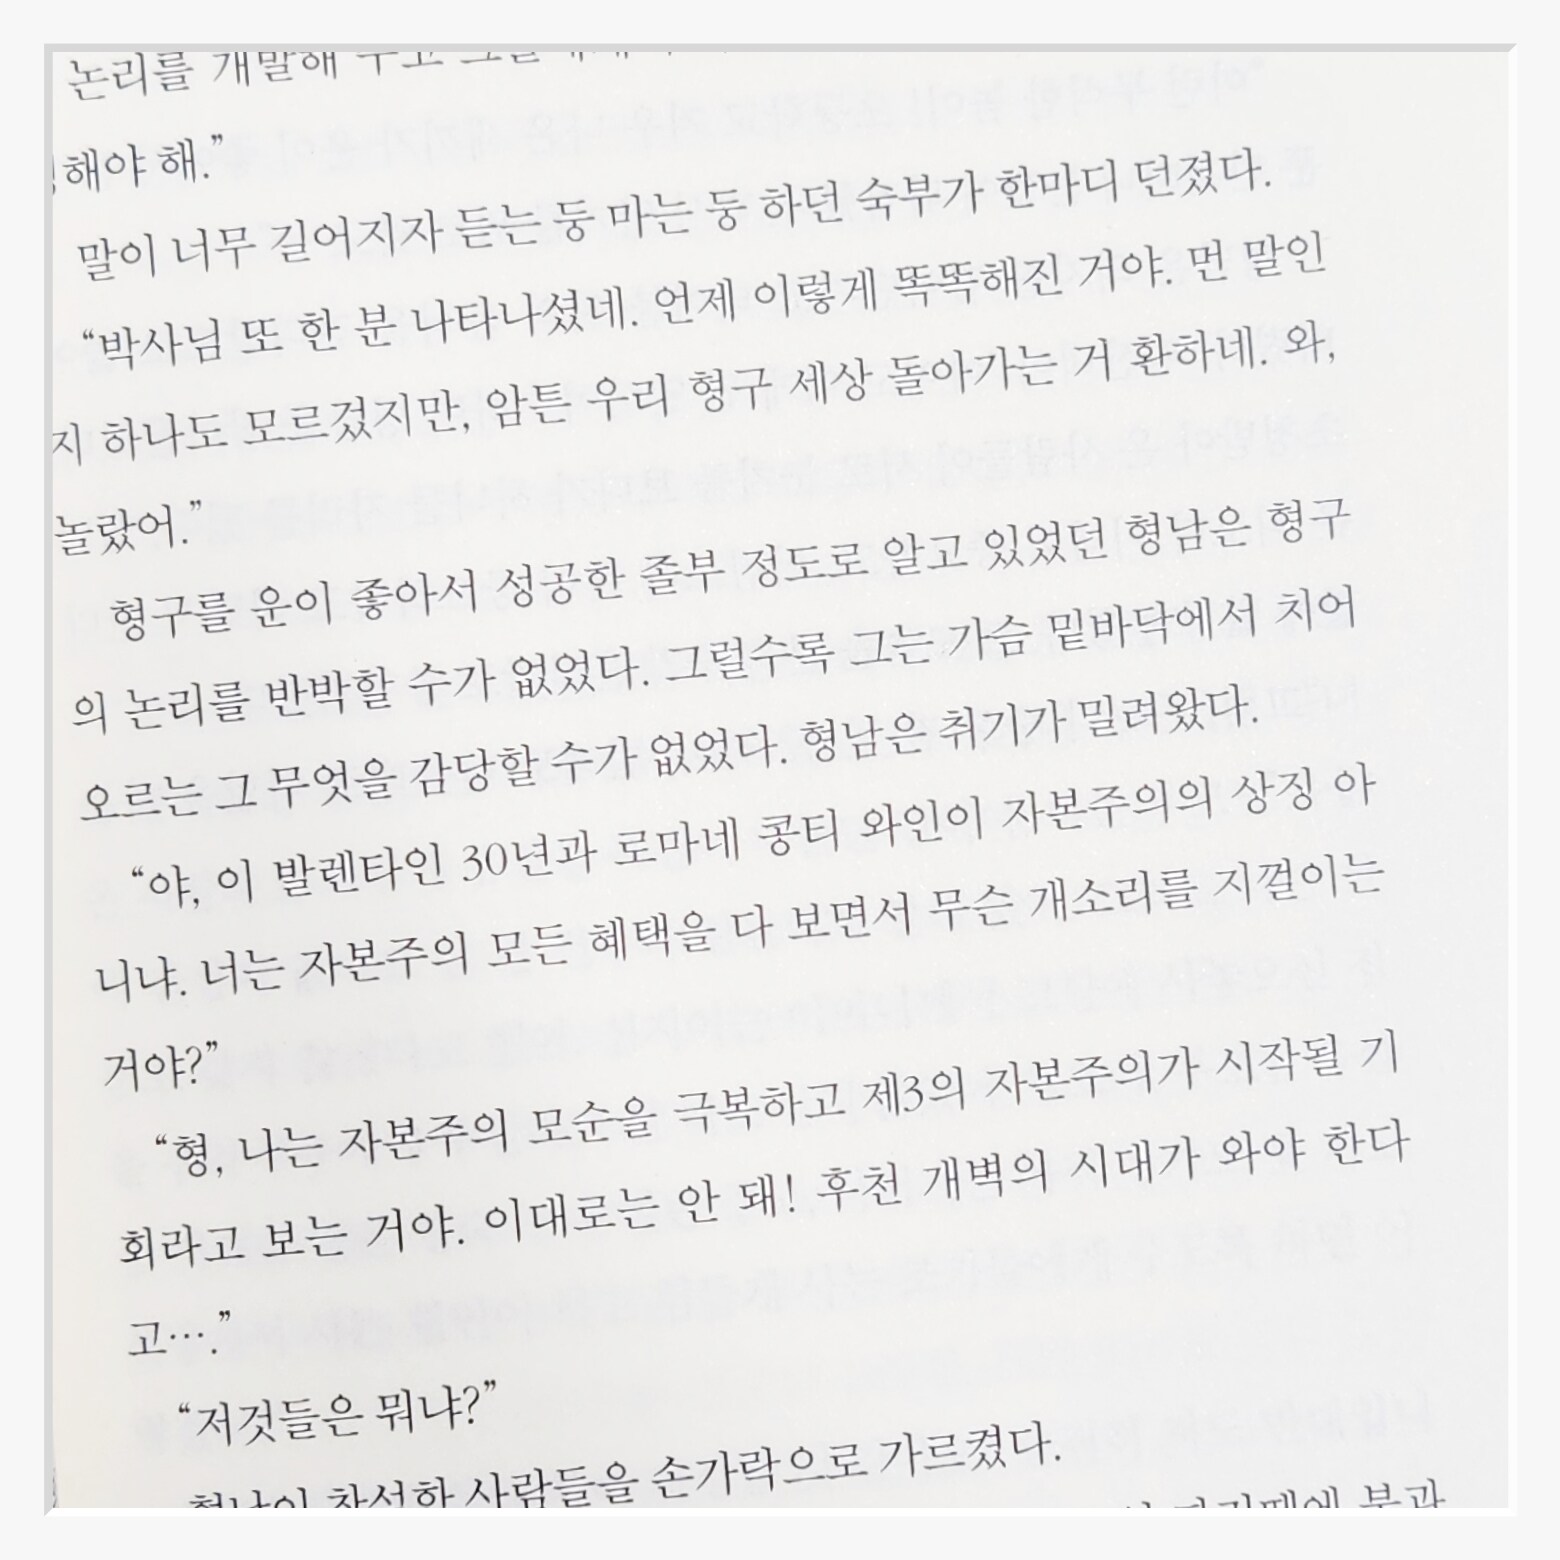 논리를 개발해
해야 해.”
말이 너무 길어지자 듣는 둥 마는 둥 하던 숙부가 한마디 던졌다.
“박사님 또 한 분 나타나셨네. 언제 이렇게 똑똑해진 거야. 먼 말인
지 하나도 모르겄지만, 암튼 우리 형구 세상 돌아가는 거 환하네. 와,
놀랐어.”
형구를 운이 좋아서 성공한 졸부 정도로 알고 있었던 형남은 형구
의 논리를 반박할 수가 없었다. 그럴수록 그는 가슴 밑바닥에서 치어
오르는 그 무엇을 감당할 수가 없었다. 형남은 취기가 밀려왔다.
“야, 이 발렌타인 30년과 로마네 콩티 와인이 자본주의의 상징 아
니냐. 너는 자본주의 모든 혜택을 다 보면서 무슨 개소리를 지껄이는
거야?”
“형, 나는 자본주의 모순을 극복하고 제3의 자본주의가 시작될 기
회라고 보는 거야. 이대로는 안 돼! 후천 개벽의 시대가 와야 한다
고….”
“저것들은 뭐냐?”
형남이 참석한 사람들을 손가락으로 가르켰다.